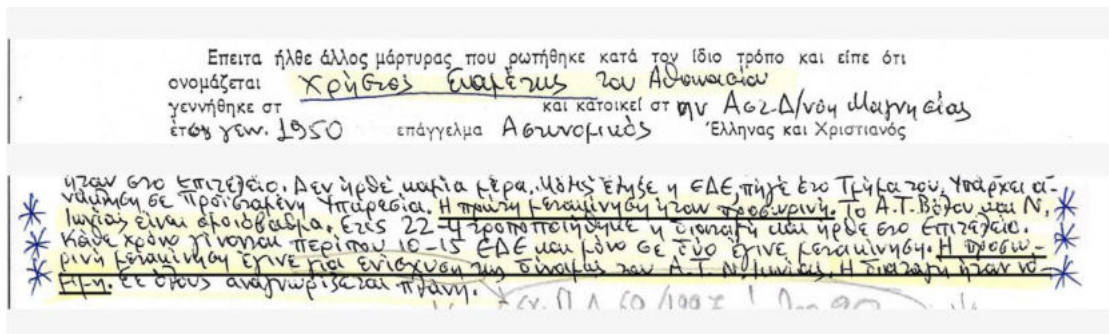 Επειτα ήλθε άλλος μάρτυρας που ρωτήθηκε κατά τον ίδιο τρόπο και είπε ότι
ονομάζεται Χρήστος του Αθανασίου
γεννήθηκε στ και κατοικεί στ ην Αστ. Δ/νση Μαγνησίας
έτος γεν. 1950 επάγγελμα Αστυνομικός Έλληνας και Χριστιανός
ήταν στο Επιτελείο. Δεν ήρθε καμία μέρα. Μόλις έληξε η ΕΔΕ, πήγε στο Τμήμα του. Υπάρχει α-
νάμνηση σε Προϊσταμένη Υπηρεσία. Η πρώτη μετακίνηση ήταν προσωρινή. Το Α.Τ. Βόλου και Ν.
Ιωνίας είναι ομοιόβαθμα. Στις 22-4 τροποποιήθηκε η διαταγή και ήρθε στο Επιτελείο.
Κάθε χρόνο γίνονται περίπου 10-15 ΕΔΕ και μόνο σε δύο έγινε μετακίνηση. Η προσω-
ρινή μετακίνηση έγινε για ενίσχυση της δύναμης του Α.Τ. Ν. Ιωνίας. Η διαταγή ήταν νό-
μιμη. Σε όλους αναγνωρίζεται πλάνη.